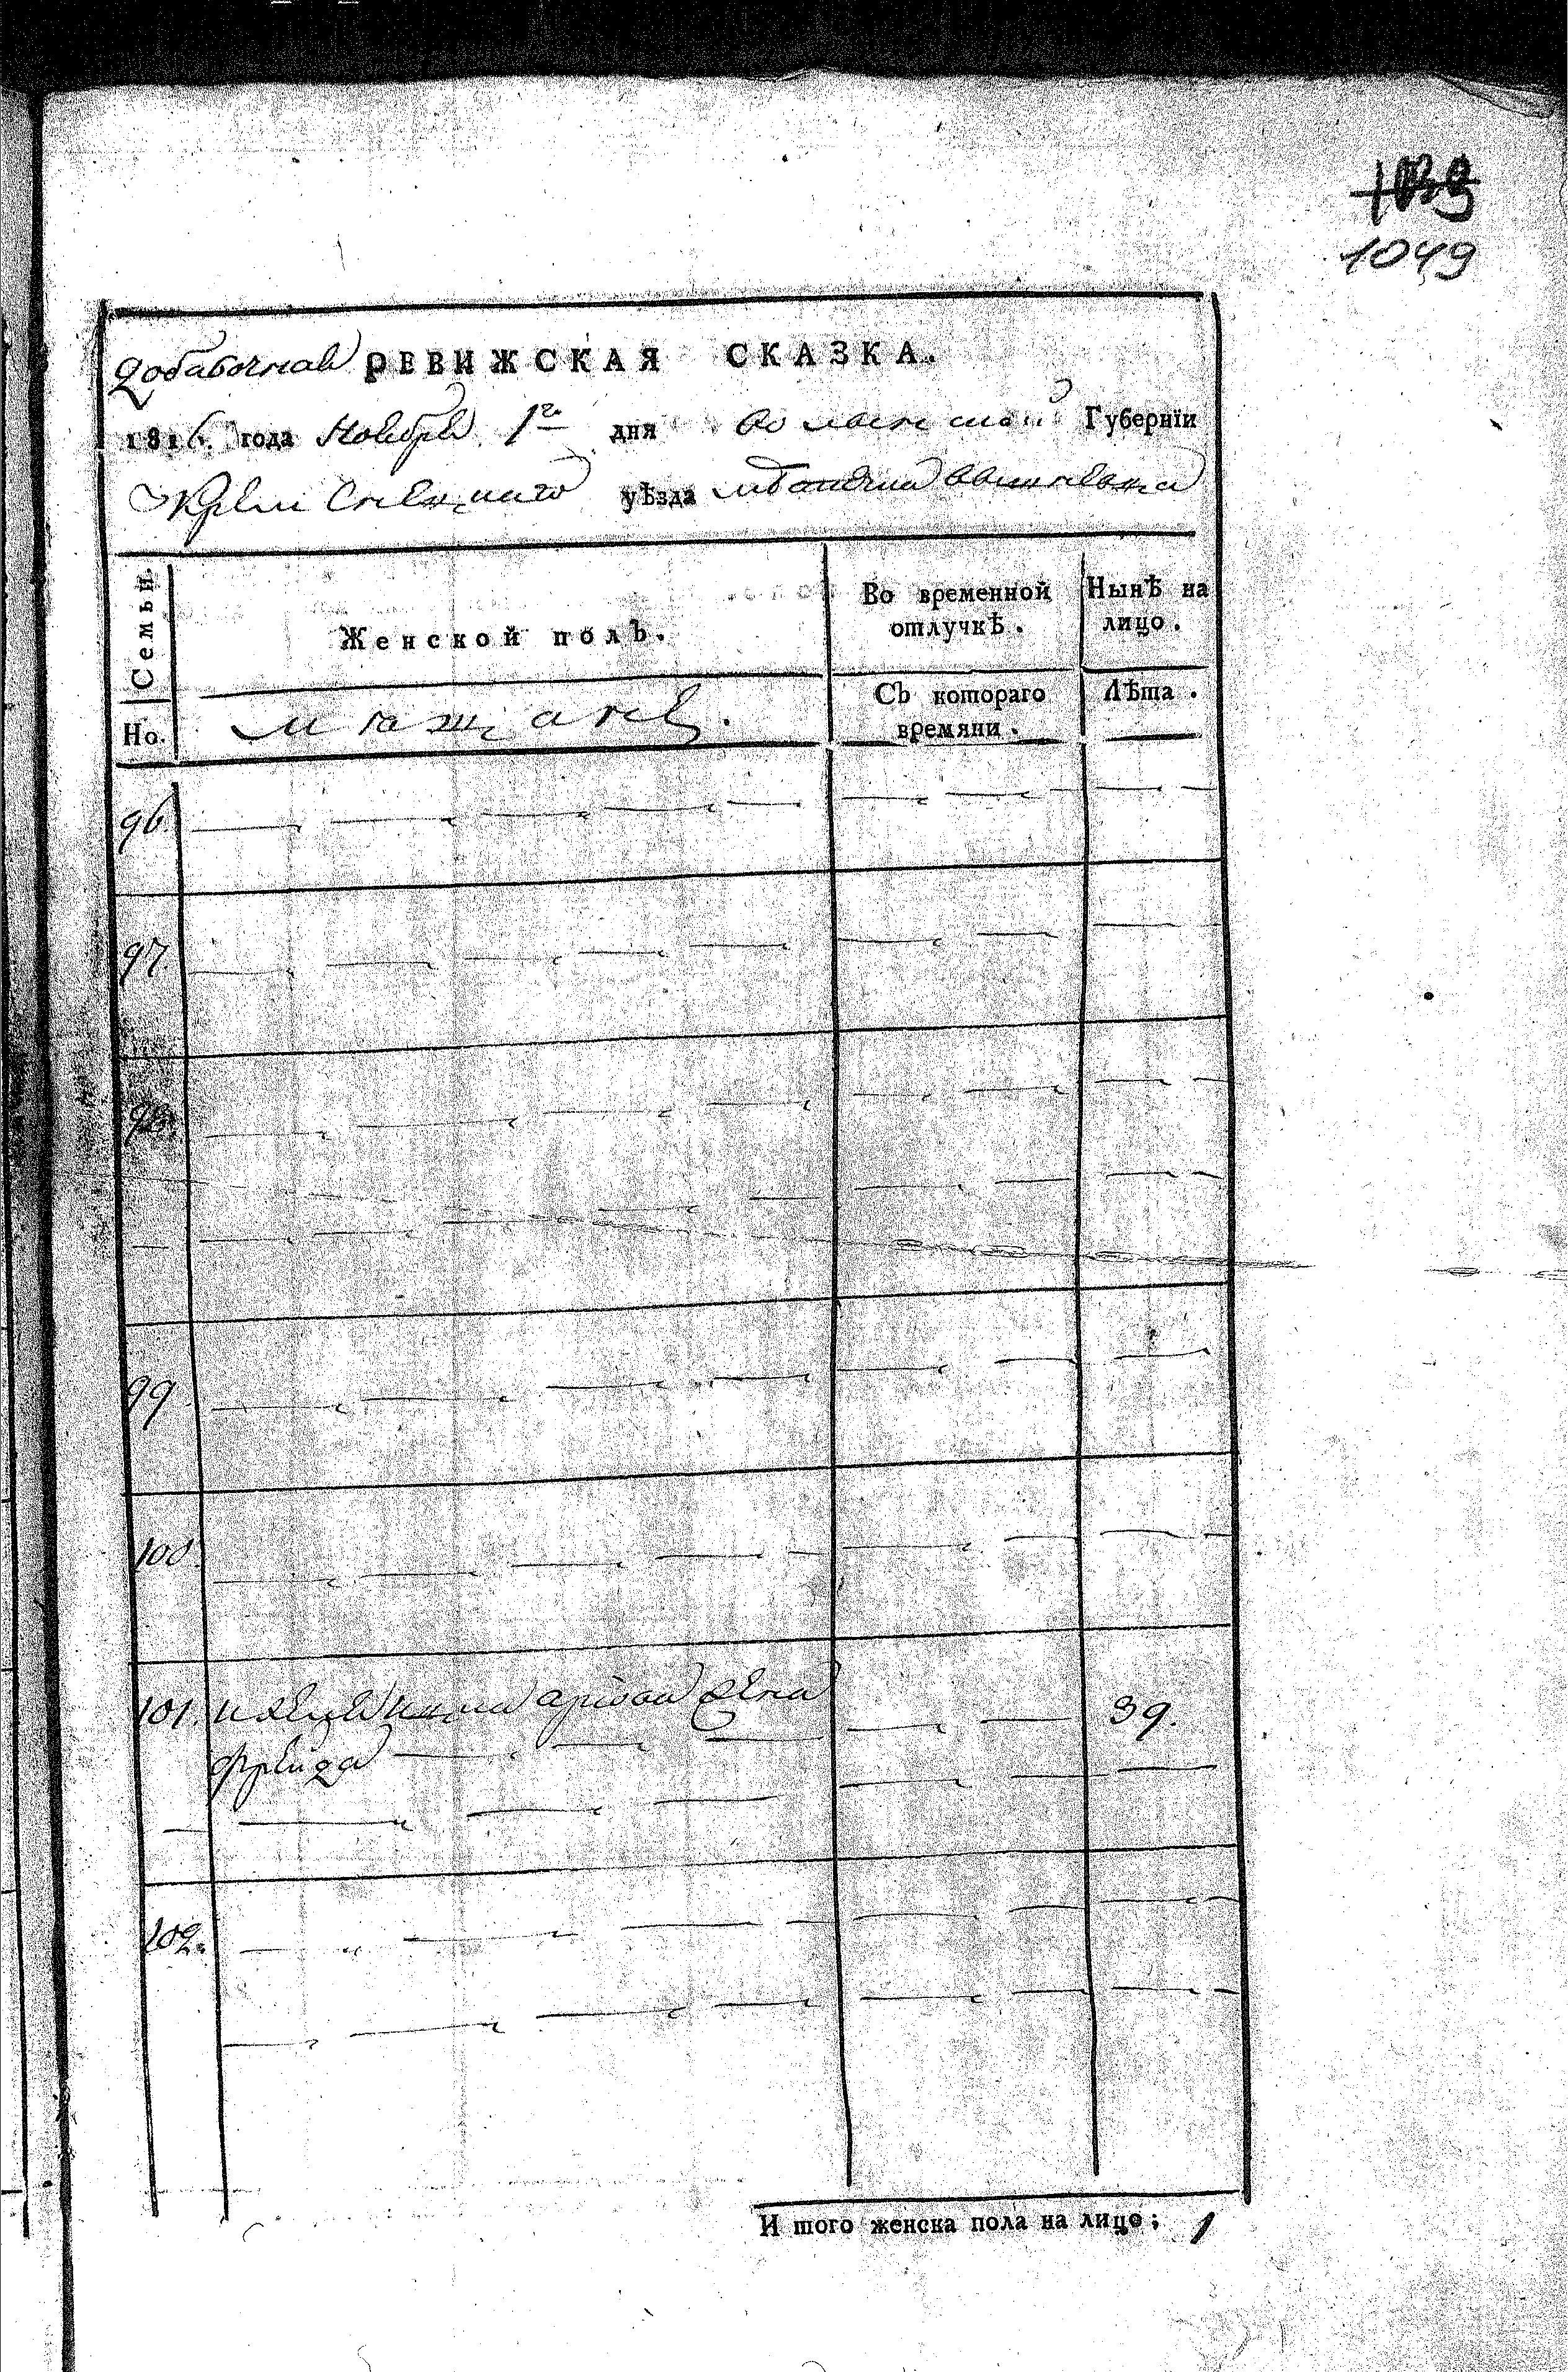 1049
добавочная РЕВИЖСКАЯ СКАЗКА.
1816. года Ноября 1го дня Волынской Губернїи
Кременецкаго уѣзда
Семьи.
Женской полъ.
Во временной отлучкѣ.
Нынѣ на лицо.
Но.
мѣщане.
Съ котораго времяни.
Лѣта.
96
97.
98.
99.
100.
101. жена 39.
Фрейда
102.
И того женска пола на лицо; 1